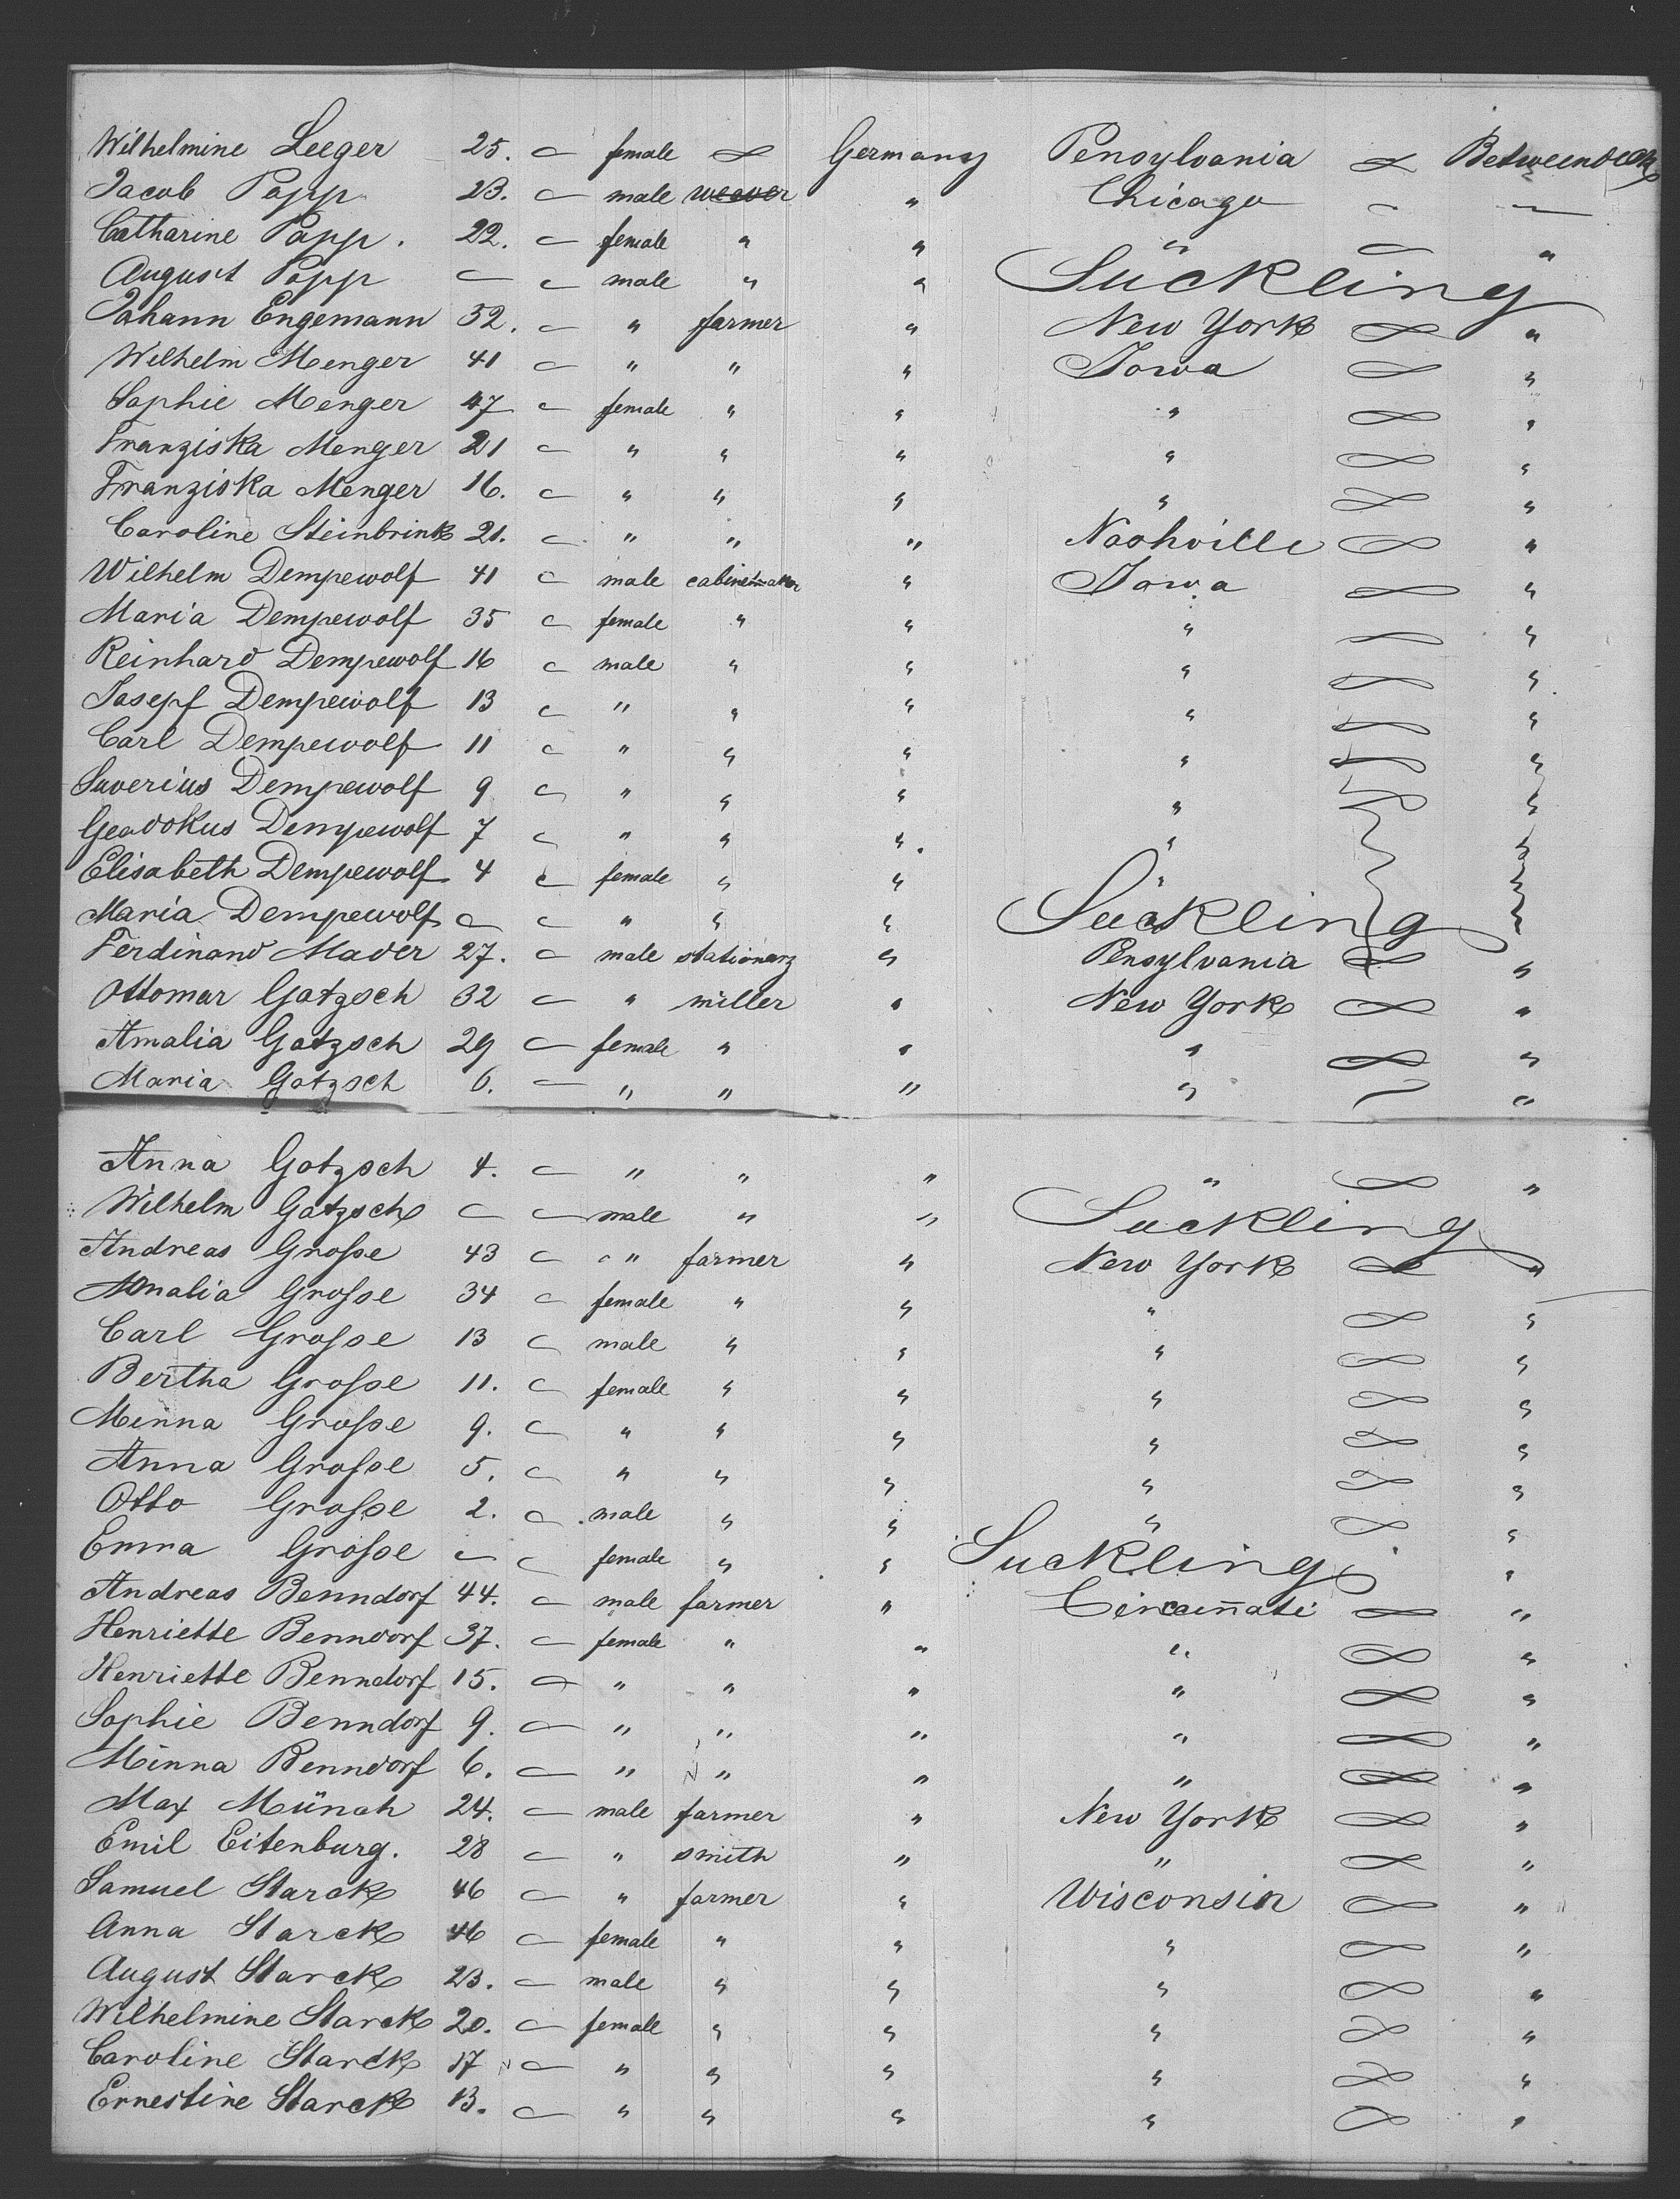 Wilhelmine Leeger 25. female Germany Pensylvania Betweendeck
Jacob Papp 23. male weaver " Chicago
Catharine Papp. 22. female " " " "
August Papp male " " Suckling
Johann Engemann 52. " farmer " New York "
Wilhelm Menger 41 " " " Iowa "
Sophie Menger 47 female " " " "
Franziska Menger 21 " " " " "
Franziska Menger 16. " " " " "
Caroline Steinbrink 21. " " " Nashville "
Wilhelm Dempewolf 41 male cabinetmaker " Iowa "
Maria Dempewolf 35 female " " " "
Reinhard Dempewolf 16 male " " " "
Josepf Dempewolf 13 " " " " "
Carl Dempewolf 11 " " " " "
Saverius Dempewolf 9 " " " " "
Dempewolf 7 " " " " "
Elisabeth Dempewolf 4 female " " " "
Maria Dempewolf " " " Suckling "
Ferdinand Mader 27. male stationary " Pensylvania "
Ottomar Gotzsch 32 " miller " New York "
Amalia Gotzsch 29 female " " " "
Maria Gotzsch 6. " " " " "
Anna Gotzsch 4. " " " " "
Wilhelm Gotzsch male " " Suckling
Andreas Grosse 43 " farmer " New York "
Amalia Grosse 34 female " " " "
Carl Grosse 13 male " " " "
Bertha Grosse 11. female " " " "
Minna Grosse 9. " " " " "
Anna Grosse 5. " " " " "
Otto Grosse 2. male " " " "
Emma Grosse female " " Suckling "
Andreas Benndorf 44. male farmer " Cincinnati "
Henriette Benndorf 37. female " " " "
Henriette Benndorf 15. " " " " "
Sophie Benndorf 9. " " " " "
Minna Benndorf 6. " " " " "
Max Münch 24. male farmer " New York "
Emil Eitenburg. 28 " smith " " "
Samuel Starck 46 " farmer " Wisconsin "
Anna Starck 46 female " " " "
August Starck 23. male " " " "
Wilhelmine Starck 20. female " " " "
Caroline Starck 17 " " " " "
Ernestine Starck 13. " " " " "